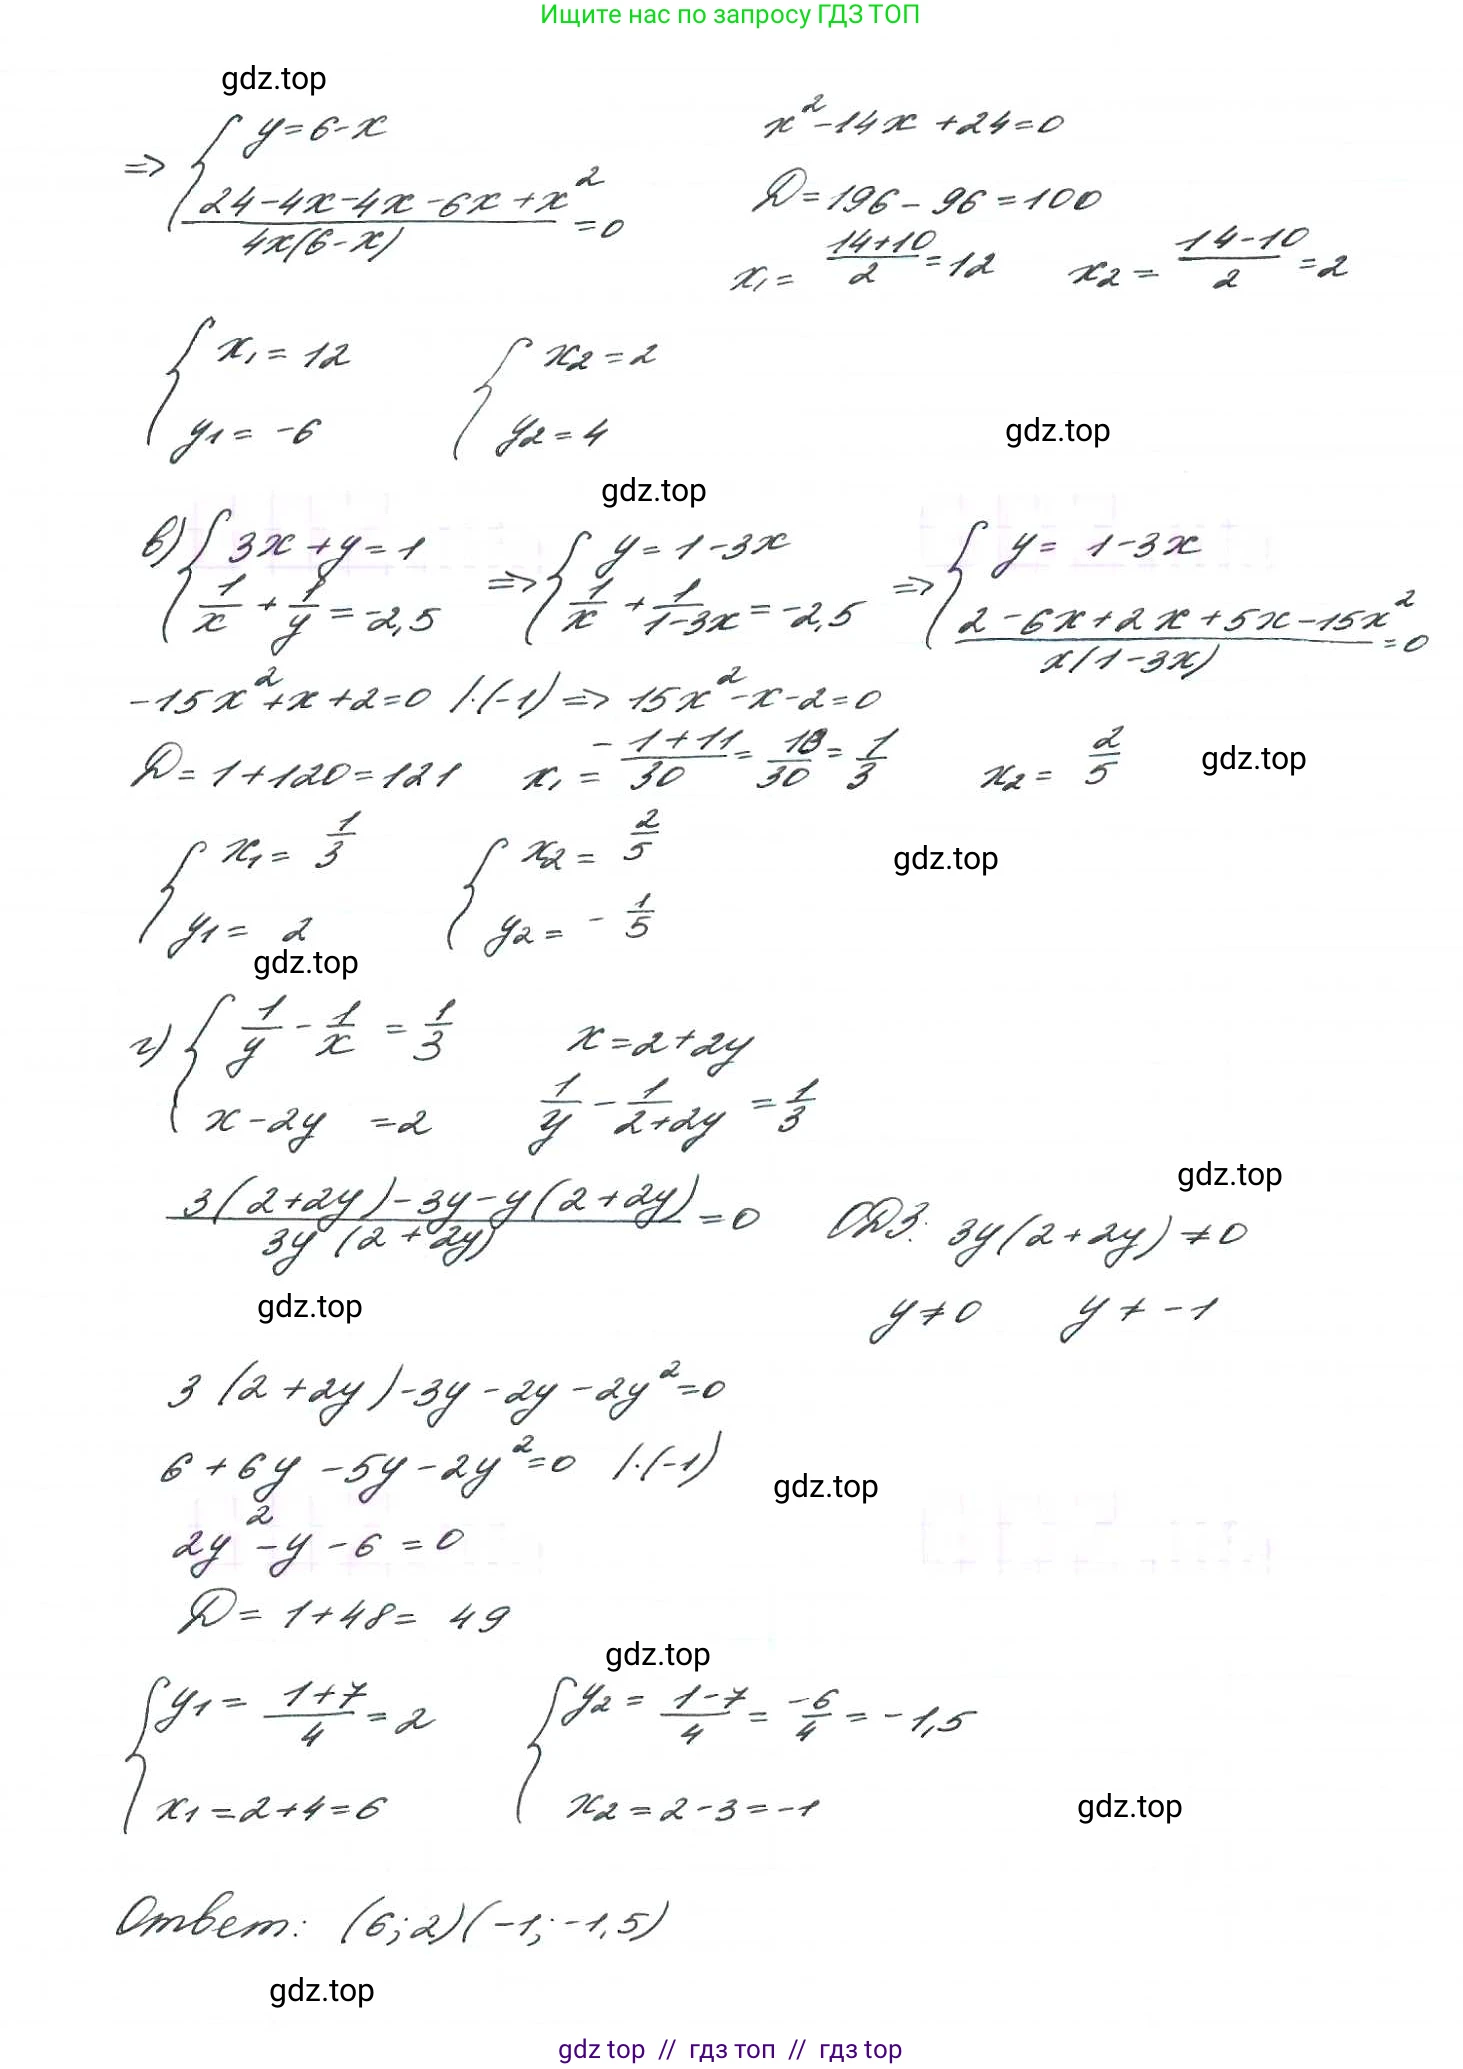 Ищите нас по запросу ГДЗ ТОП
gdz.top
=> { y=6-x
(24-4x-4x-6x+x²)/(4x(6-x)) =0
x²-14x+24=0
D=196-96=100
x₁= (14+10)/2 =12   x₂= (14-10)/2 =2
{ x₁=12   { x₂=2
y₁=-6   y₂=4
gdz.top
gdz.top
в) { 3x+y=1 => { y=1-3x => { y= 1-3x
1/x + 1/y =-2,5   1/x + 1/(1-3x) =-2,5   (2-6x+2x+5x-15x²)/(x(1-3x)) =0
-15x²+x+2=0 |·(-1) => 15x²-x-2=0
D=1+120=121   x₁= -(1+11)/30 = 10/30 = 1/3   x₂= 2/5
gdz.top
{ x₁= 1/3   { x₂= 2/5
gdz.top
y₁= 2   y₂= - 1/5
gdz.top
г) { 1/y - 1/x = 1/3   x=2+2y
x-2y =2   1/y - 1/(2+2y) = 1/3
gdz.top
(3(2+2y)-3y-y(2+2y))/(3y(2+2y)) =0   ОДЗ: 3y(2+2y)≠0
gdz.top
y≠0   y≠-1
3(2+2y)-3y-2y-2y²=0
6+6y-5y-2y²=0 |·(-1)
gdz.top
2y²-y-6=0
D= 1+48= 49
gdz.top
{ y₁= (1+7)/4 =2   { y₂= (1-7)/4 = -6/4 =-1,5
x₁=2+4=6   x₂=2-3=-1
gdz.top
Ответ: (6;2)(-1;-1,5)
gdz.top
gdz top // гдз топ // гдз top